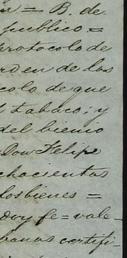 = B. de
publico =
rotocolo de
rden de los
colo de que
tabaco; y
del bienio
Don Felipe
chocientos
los bienes =
doy fe = vale
banos certifi